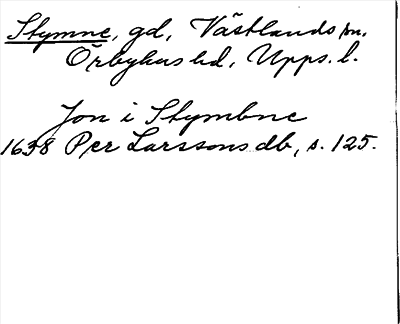 Stymne, gd, Västlands sn.
Örbyhus hd, Upps. l.
Jon i Stymbne
1638 Per Larssons db, s. 125.